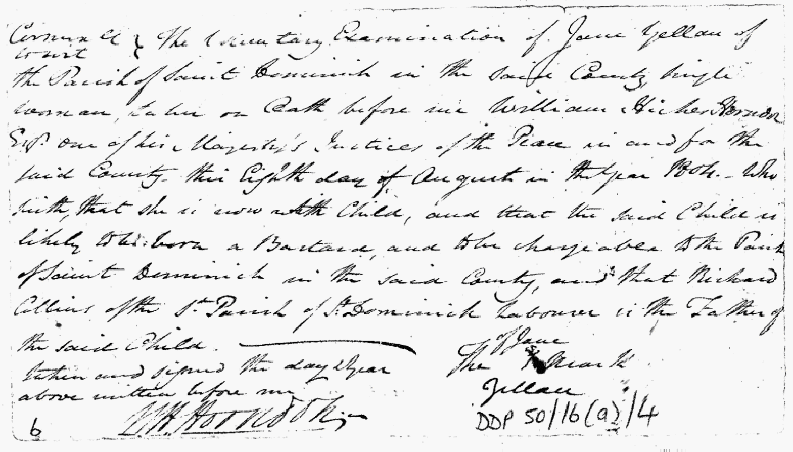 Cornwall } The Voluntary Examination of Jane Yellan of
to wit
the Parish of Saint Dominick in the said County, Single
Woman, taken on Oath before me William Hickes Horndon
Esqr. one of his Majesty's Justices of the Peace in and for the
said County. this Eighth day of August in the year 180 . - Who
saith, that she is now with Child, and that the said Child is
likely to be born a Bastard, and to be chargeable to the Parish
of Saint Dominick in the said County, and that Richard
Collins of the sd. Parish of St. Dominick Labourer is the Father of
the said Child.
of Jane
taken and signed the day & year
The X Mark
above written before me
Yellan
W H Horndon
DDP 50/16(a)/4
6